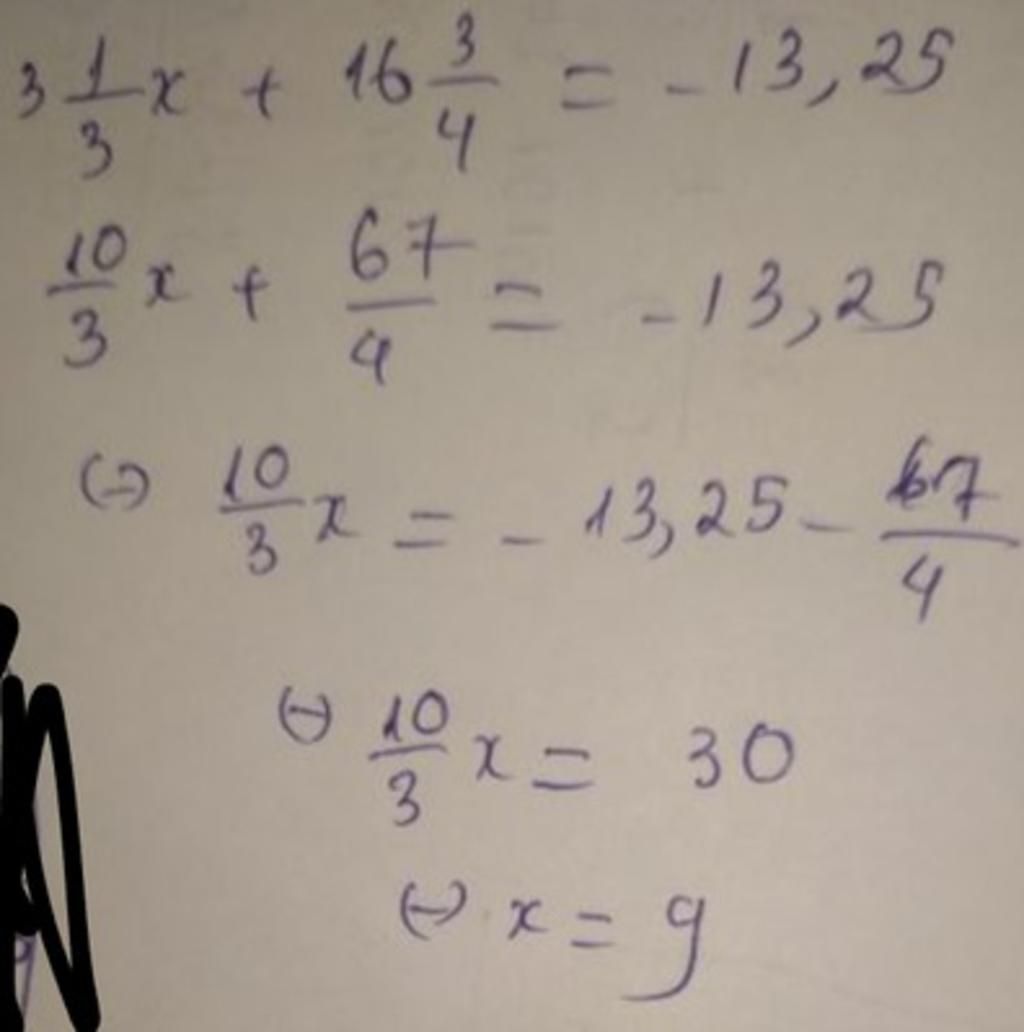 3 1/3 x + 16 3/4 = - 13,25
10/3 x + 67/4 = - 13,25
(=) 10/3 x = - 13,25 - 67/4
(=) 10/3 x = 30
(=) x = 9